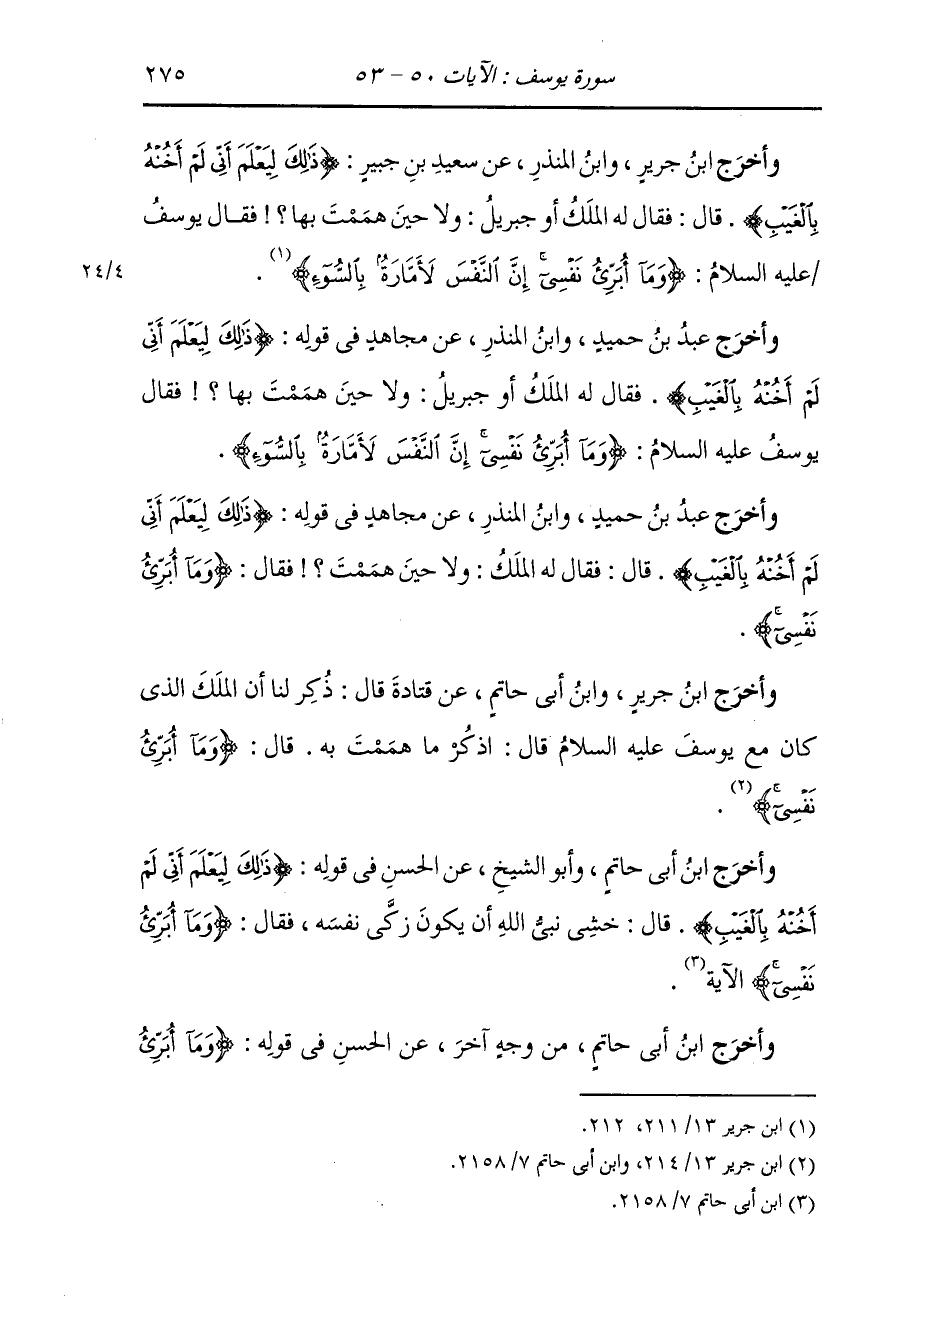 سورة يوسف : الآيات ٥٠ - ٥٣ ٢٧٥
وأخرَج ابنُ جريرٍ ، وابنُ المنذرِ ، عن سعيدِ بنِ جبيرٍ : ﴿ذَٰلِكَ لِيَعْلَمَ أَنِّى لَمْ أَخُنْهُ
بِٱلْغَيْبِ﴾ . قال : فقال له الملَكُ أو جبريلُ : ولا حينَ همَمْتَ بها ؟! فقـال يوسفُ
/عليه السلامُ : ﴿وَمَآ أُبَرِّئُ نَفْسِىٓ ۚ إِنَّ ٱلنَّفْسَ لَأَمَّارَةٌۢ بِٱلسُّوٓءِ﴾(١) . ٢٤/٤
وأخرَج عبدُ بنُ حميدٍ ، وابنُ المنذرِ ، عن مجاهدٍ فى قولِه : ﴿ذَٰلِكَ لِيَعْلَمَ أَنِّى
لَمْ أَخُنْهُ بِٱلْغَيْبِ﴾ . فقال له الملَكُ أو جبريلُ : ولا حينَ همَمْتَ بها ؟ ! فقال
يوسفُ عليه السلامُ : ﴿وَمَآ أُبَرِّئُ نَفْسِىٓ ۚ إِنَّ ٱلنَّفْسَ لَأَمَّارَةٌۢ بِٱلسُّوٓءِ﴾ .
وأخرَج عبدُ بنُ حميدٍ ، وابنُ المنذرِ ، عن مجاهدٍ فى قولِه : ﴿ذَٰلِكَ لِيَعْلَمَ أَنِّى
لَمْ أَخُنْهُ بِٱلْغَيْبِ﴾ . قال : فقال له الملَكُ : ولا حينَ همَمْتَ ؟ ! فقال : ﴿وَمَآ أُبَرِّئُ
نَفْسِىٓ ۚ﴾ .
وأخرَج ابنُ جريرٍ ، وابنُ أبى حاتمٍ ، عن قتادةَ قال : ذُكِر لنا أن الملَكَ الذى
كان مع يوسفَ عليه السلامُ قال : اذكُرْ ما همَمْتَ به . قال : ﴿وَمَآ أُبَرِّئُ
نَفْسِىٓ ۚ﴾(٢) .
وأخرَج ابنُ أبى حاتمٍ ، وأبو الشيخِ ، عن الحسنِ فى قولِه : ﴿ذَٰلِكَ لِيَعْلَمَ أَنِّى لَمْ
أَخُنْهُ بِٱلْغَيْبِ﴾ . قال : خشِى نبىُّ اللهِ أن يكونَ زكَّى نفسَه ، فقال : ﴿وَمَآ أُبَرِّئُ
نَفْسِىٓ ۚ﴾ الآية(٣) .
وأخرَج ابنُ أبى حاتمٍ ، من وجهٍ آخرَ ، عن الحسنِ فى قولِه : ﴿وَمَآ أُبَرِّئُ
(١) ابن جرير ١٣/ ٢١١، ٢١٢.
(٢) ابن جرير ١٣/ ٢١٤، وابن أبى حاتم ٧/ ٢١٥٨.
(٣) ابن أبى حاتم ٧/ ٢١٥٨.